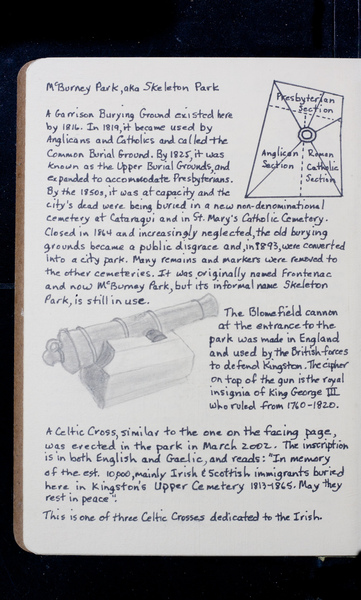 McBurney Park, aka Skeleton Park
Presbyterian
Section
Anglican
Section
Roman
Catholic
Section
A Garrison Burying Ground existed here
by 1816. In 1819, it became used by
Anglicans and Catholics and called the
Common Burial Ground. By 1825, it was
known as the Upper Burial Grounds, and
expanded to accommodate Presbyterians.
By the 1850s, it was at capacity and the
city's dead were being buried in a new non-denominational
cemetery at Cataraqui and in St. Mary's Catholic Cemetery.
Closed in 1864 and increasingly neglected, the old burying
grounds became a public disgrace and, in 1893, were converted
into a city park. Many remains and markers were removed to
the other cemeteries. It was originally named Frontenac
and now McBurney Park, but its informal name Skeleton
Park, is still in use.
The Blomefield cannon
at the entrance to the
park was made in England
and used by the British forces
to defend Kingston. The cipher
on top of the gun is the royal
insignia of King George III
who ruled from 1760-1820.
A Celtic Cross, similar to the one on the facing page,
was erected in the park in March 2002. The inscription
is in both English and Gaelic, and reads: "In memory
of the est. 10,000, mainly Irish & Scottish immigrants buried
here in Kingston's Upper Cemetery 1813-1865. May they
rest in peace".
This is one of three Celtic Crosses dedicated to the Irish.